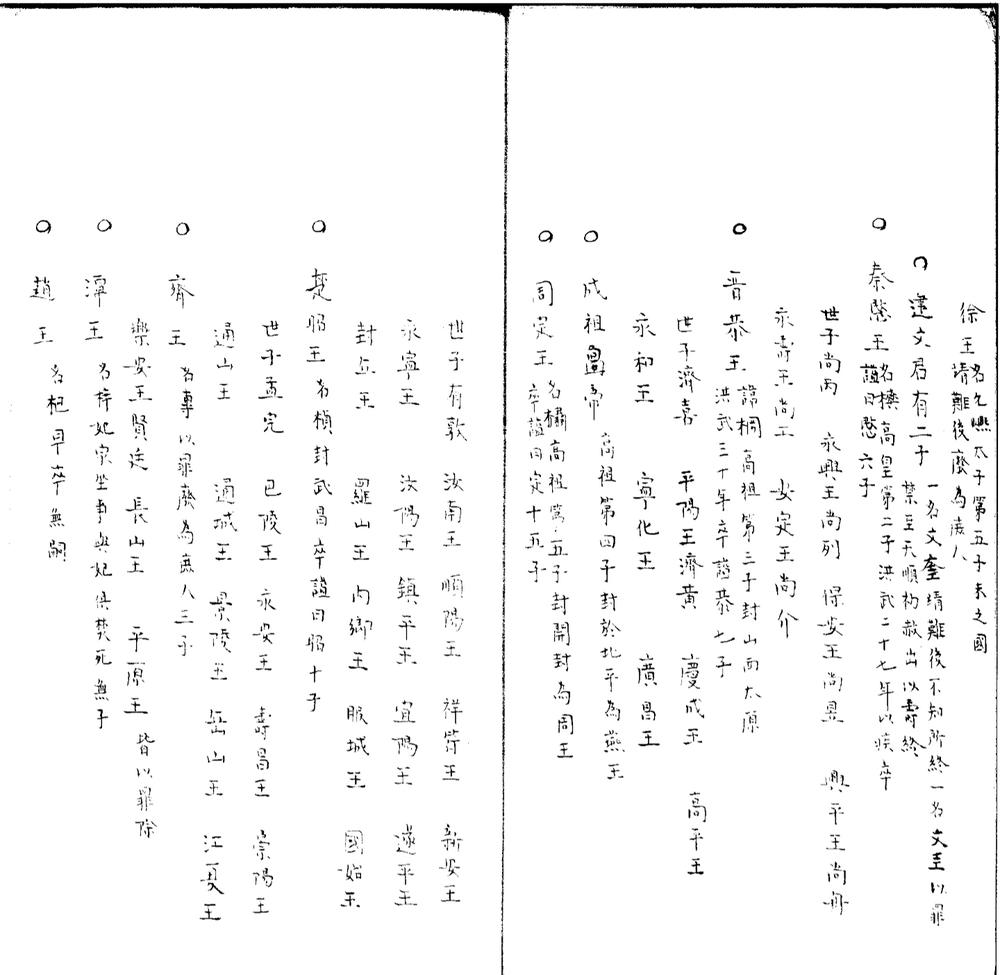 徐王名允㷩太子第五子未之國
靖難後廢為庶人
○建文君有二子一名文奎靖難後不知所終一名文圭以罪
禁至天順初赦出以壽終
○秦愍王名樉高皇第二子洪武二十七年以疾卒
諡曰愍六子
世子尚丙 永興王尚列 保安王尚昱 興平王尚冉
永壽王尚工 安定王尚介
○晋恭王諱棡高祖第三子封山西太原
洪武三十年卒諡恭七子
世子濟熹 平陽王濟黃 慶成王 高平王
永和王 寧化王 廣昌王
○成祖皇帝高祖第四子封於北平為燕王
○周定王名橚高祖第五子封開封為周王
卒諡曰定十五子
世子有敦 汝南王 順陽王 祥符王 新安王
永寧王 汝陽王 鎮平王 宜陽王 遂平王
封丘王 羅山王 內鄉王 服城王 國始王
○楚昭王名楨封武昌卒諡曰昭十子
世子孟完 巴陵王 永安王 壽昌王 崇陽王
通山王 通城王 景陵王 岳山王 江夏王
○齊王名專以罪廢為庶人三子
樂安王賢 長山王 平原王皆以罪除
○潭王名梓妃家坐事與妃俱焚死無子
○趙王名杞早卒無嗣